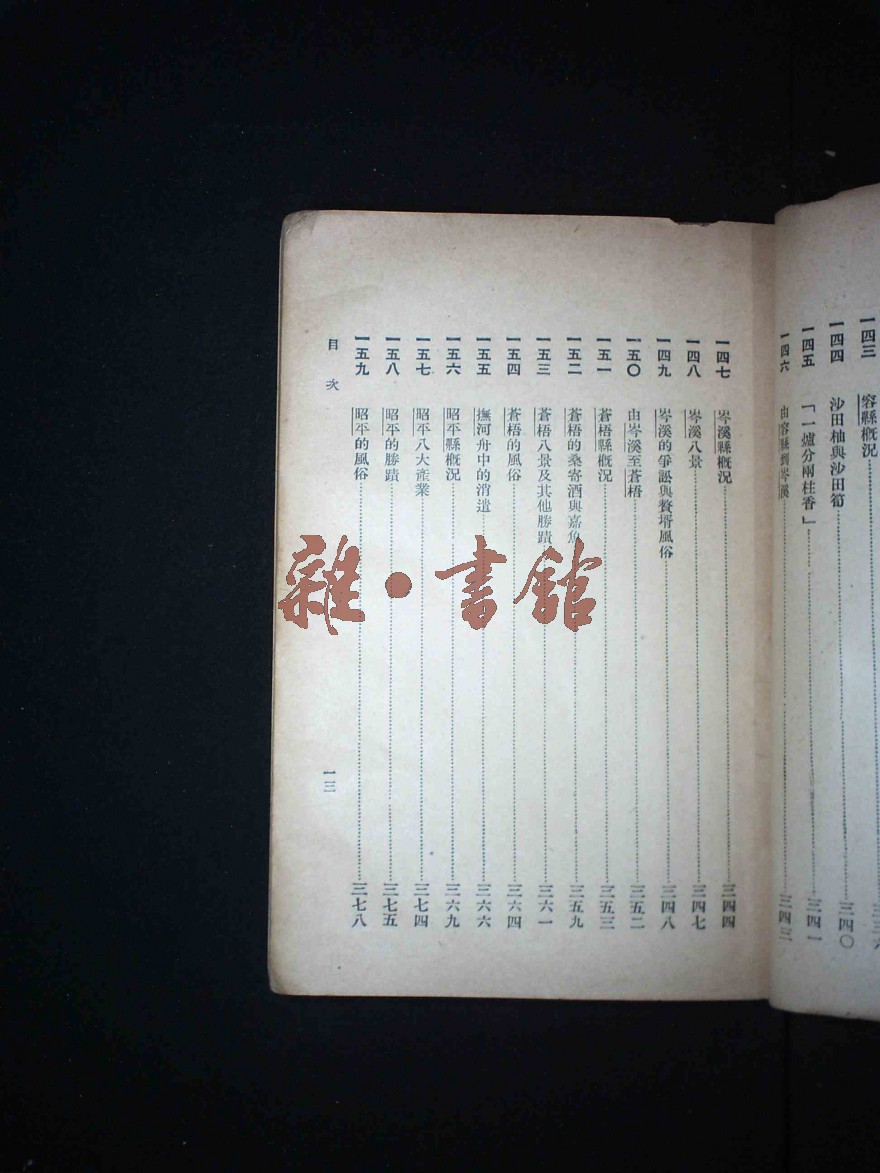 一四三 容縣概況
一四四 沙田柚與沙田筍 三四〇
一四五 「一爐分兩桂香」 三四一
一四六 由容縣到岑溪 三四三
一四七 岑溪縣概況 三四四
一四八 岑溪八景 三四七
一四九 岑溪的爭訟與贅壻風俗 三四八
一五〇 由岑溪至蒼梧 三五二
一五一 蒼梧縣概況 三五三
一五二 蒼梧的桑寄酒與嘉魚 三五九
一五三 蒼梧八景及其他勝蹟 三六一
一五四 蒼梧的風俗 三六四
一五五 撫河舟中的消遣 三六六
一五六 昭平縣概況 三六九
一五七 昭平八大產業 三七四
一五八 昭平的勝蹟 三七五
一五九 昭平的風俗 三七八
目次 一三
雜·書館